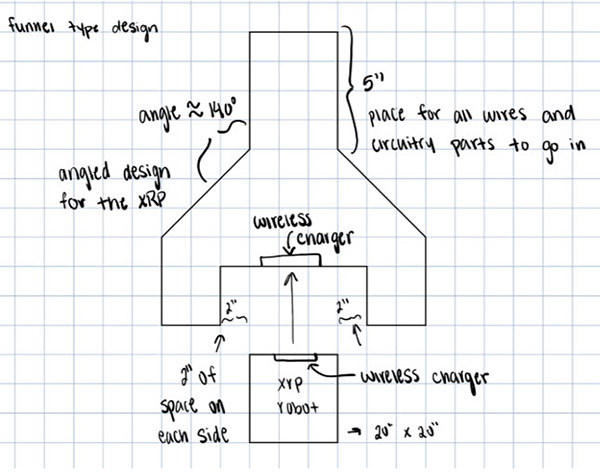 funnel type design
5"
angle ≈ 140°
place for all wires and
circuitry parts to go in
angled design
for the XRP
wireless
charger
2"
2"
2" of
space on
each side
xrp
robot
wireless charger
→ 20" x 20"